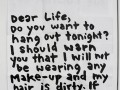 Dear Life,
Do you want to
hang out tonight?
I should warn
you that I will not
be wearing any
make-up and my
hair is dirty. If